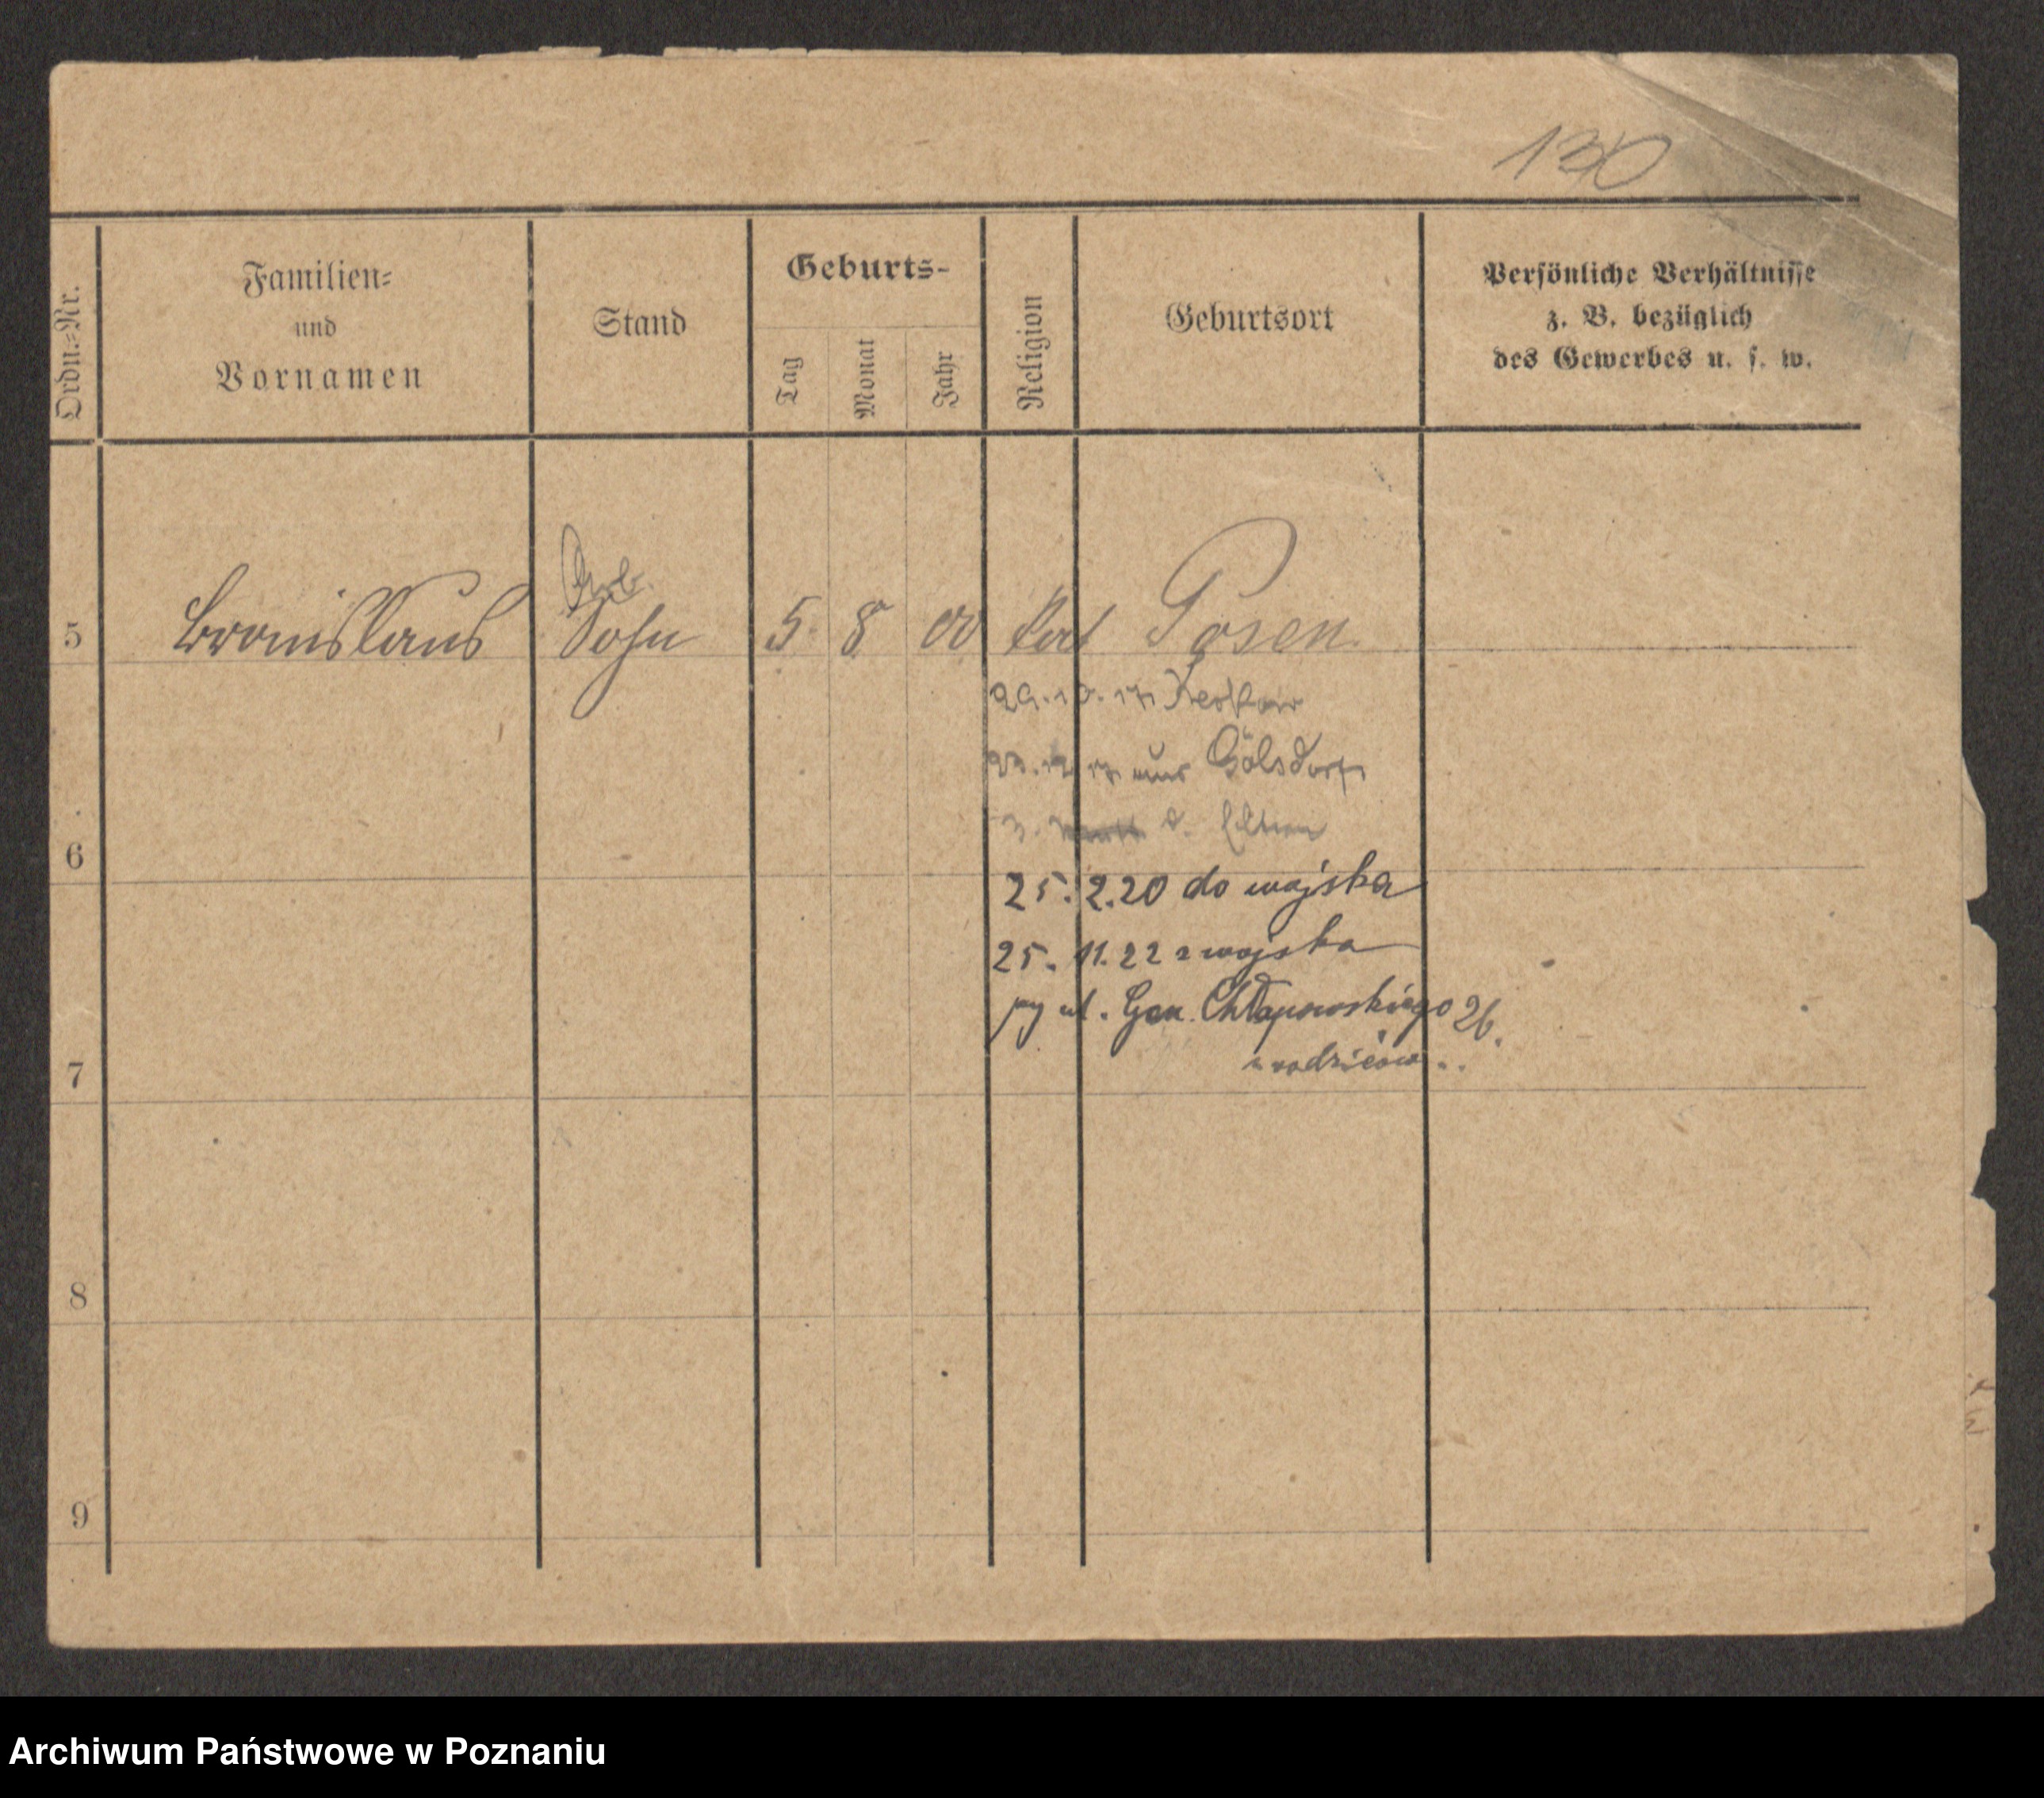 130
Ordn.=Nr.
Familien=
und
Vornamen
Stand
Geburts-
Tag
Monat
Jahr
Religion
Geburtsort
Persönliche Verhältnisse
z. B. bezüglich
des Gewerbes u. s. w.
Arb.
5 Bronislaus Sohn 5. 8. 00 kat Posen
17
17 aus Gölsdorf
z. d. Eltern
6
25. 2.20 do wojska
25. 11. 22 z wojska
py ul. Gen. Chłapowskiego 26.
u rodziców..
7
8
9
Archiwum Państwowe w Poznaniu